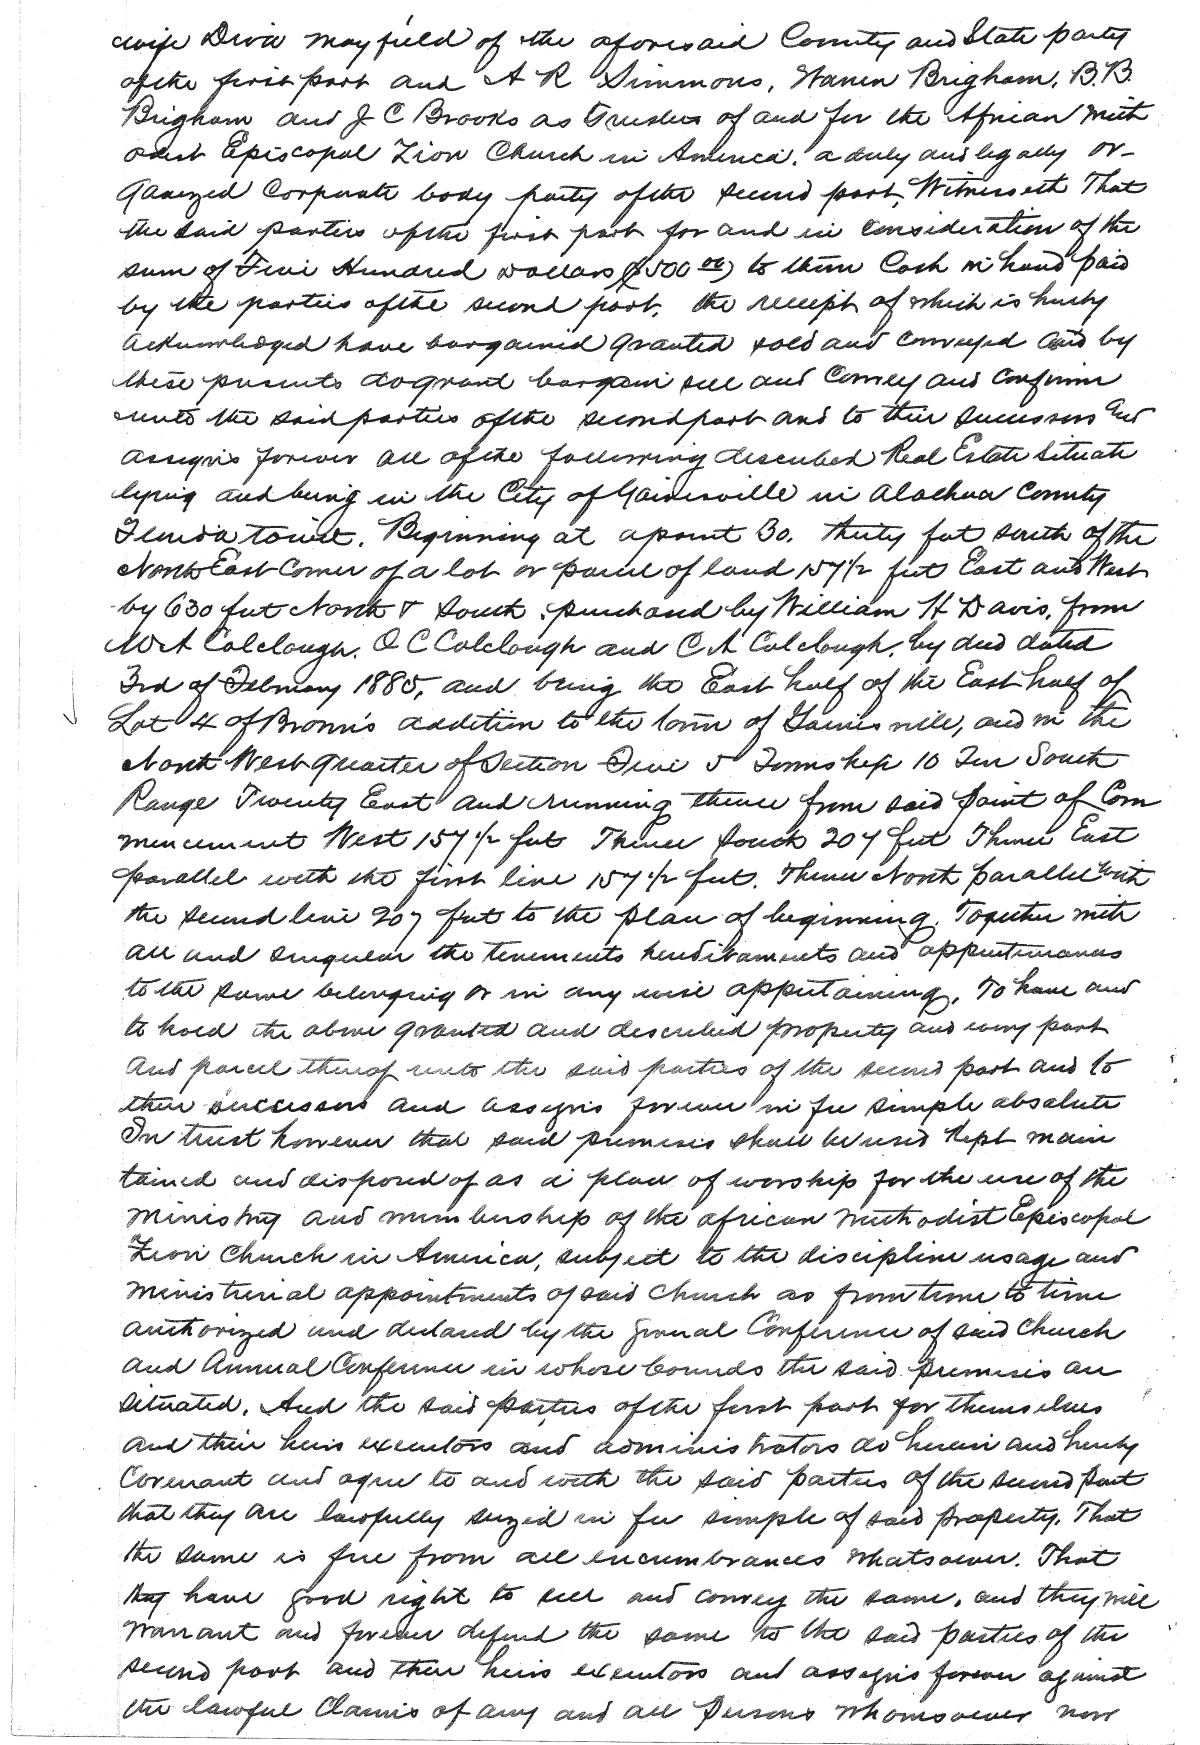 wife Diva Mayfield of the aforesaid County and State party
of the first part and A R Simmons, Warren Brigham, B. B.
Brigham and J C Brooks as Trustees of and for the African Meth
odist Episcopal Zion Church in America, a duly and legally or-
ganized Corporate body party of the second part, Witnesseth That
the said parties of the first part for and in consideration of the
sum of Five Hundred Dollars ($500 00) to them Cash in hand paid
by the parties of the second part, the receipt of which is hereby
acknowledged have bargained granted sold and conveyed and by
these presents do grant bargain sell and Convey and Confirm
unto the said parties of the second part and to their successors and
assigns forever all of the following described Real Estate situate
lying and being in the City of Gainesville in Alachua County
Florida towit. Beginning at a point 30. thirty feet south of the
North East Corner of a lot or parcel of land 157 1/2 feet East and West
by 630 feet North & South, purchased by William H Davis, from
W A Colclough, O C Colclough and C A Colclough, by deed dated
3rd of February 1885, and being the East half of the East half of
Lot 4 of Brown's addition to the town of Gainesville, and in the
North West quarter of Section Five 5 Township 10 Ten South
Range Twenty East and running thence from said point of Com
mencement West 157 1/2 feet Thence South 207 feet Thence East
parallel with the first line 157 1/2 feet. Thence North parallel with
the second line 207 feet to the place of beginning. Together with
all and singular the tenements hereditaments and appurtenances
to the same belonging or in any wise appertaining, To have and
to hold the above granted and described property and every part
and parcel thereof unto the said parties of the second part and to
their successors and assigns forever in fee simple absolute
In trust however that said premises shall be used kept main
tained and disposed of as a place of worship for the use of the
ministry and membership of the african methodist Episcopal
Zion Church in America, subject to the discipline usage and
ministerial appointments of said Church as from time to time
authorized and declared by the general Conference of said Church
and Annual Conference in whose bounds the said premises are
situated. And the said parties of the first part for themselves
and their heirs executors and administrators do herein and hereby
Covenant and agree to and with the said parties of the second part
that they are lawfully seized in fee simple of said property. That
the same is free from all encumbrances whatsoever. That
they have good right to sell and convey the same, and they will
warrant and forever defend the same to the said parties of the
second part and their heirs executors and assigns forever against
the lawful Claims of any and all persons whomsoever now